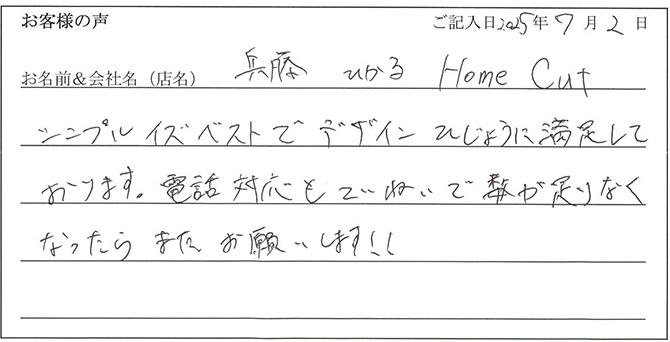 お客様の声 ご記入日2025年7月2日
お名前&会社名（店名） 兵藤 ひかる Home Cut
シンプルイズベストでデザインひじょうに満足して
おります。電話対応もていねいで数が足りなく
なったらまたお願いします!!